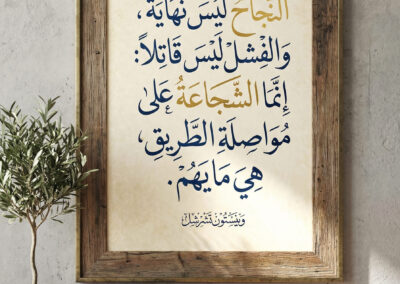 النَّجَاحُ لَيْسَ نِهَايَةً،
وَالْفِشَلُ لَيْسَ قَاتِلاً:
إِنَّمَا الشَّجَاعَةُ عَلَى
مُوَاصِلَةِ الطَّرِيقِ،
هِيَ مَا يَهُمْ.
وِينِسْتُون تَشِرْشِلْ